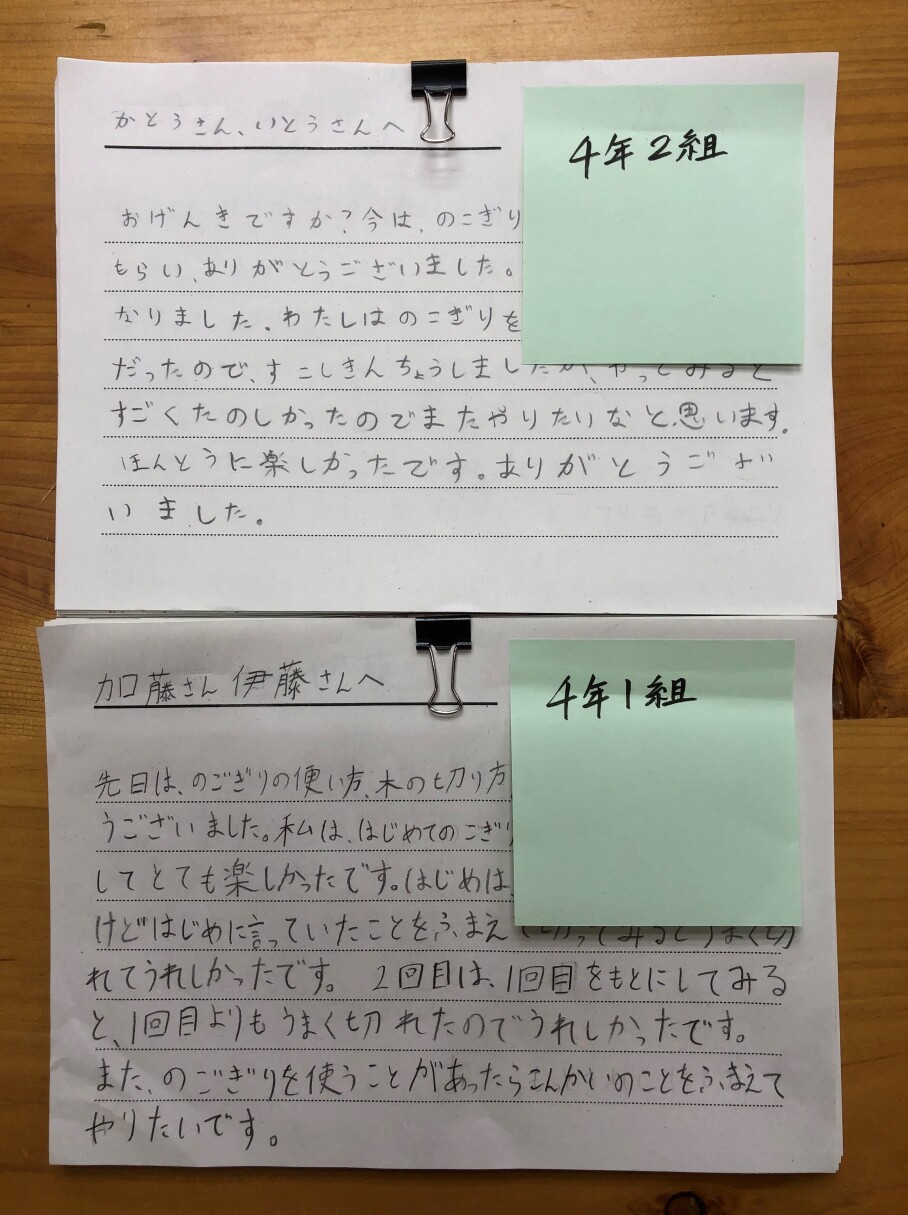 かとうさん、いとうさんへ
4年2組
おげんきですか?今は、のこぎり
もらい、ありがとうございました。
なりました、わたしはのこぎりを
だったので、すこしきんちょうしましたが、やってみると
すごくたのしかったのでまたやりたいなと、思います。
ほんとうに楽しかったです。ありがとうござ
いました。
加藤さん 伊藤さんへ
4年1組
先日は、のこぎりの使い方、木の切り方
うございました。私は、はじめてのこぎり
してとても楽しかったです。はじめは、
けどはじめに言っていたことをふまえて切ってみるとうまく切
れてうれしかったです。 2回目は、1回目をもとにしてみる
と、1回目よりもうまく切れたのでうれしかったです。
また、のこぎりを使うことがあったらこんかいのことをふまえて
やりたいです。